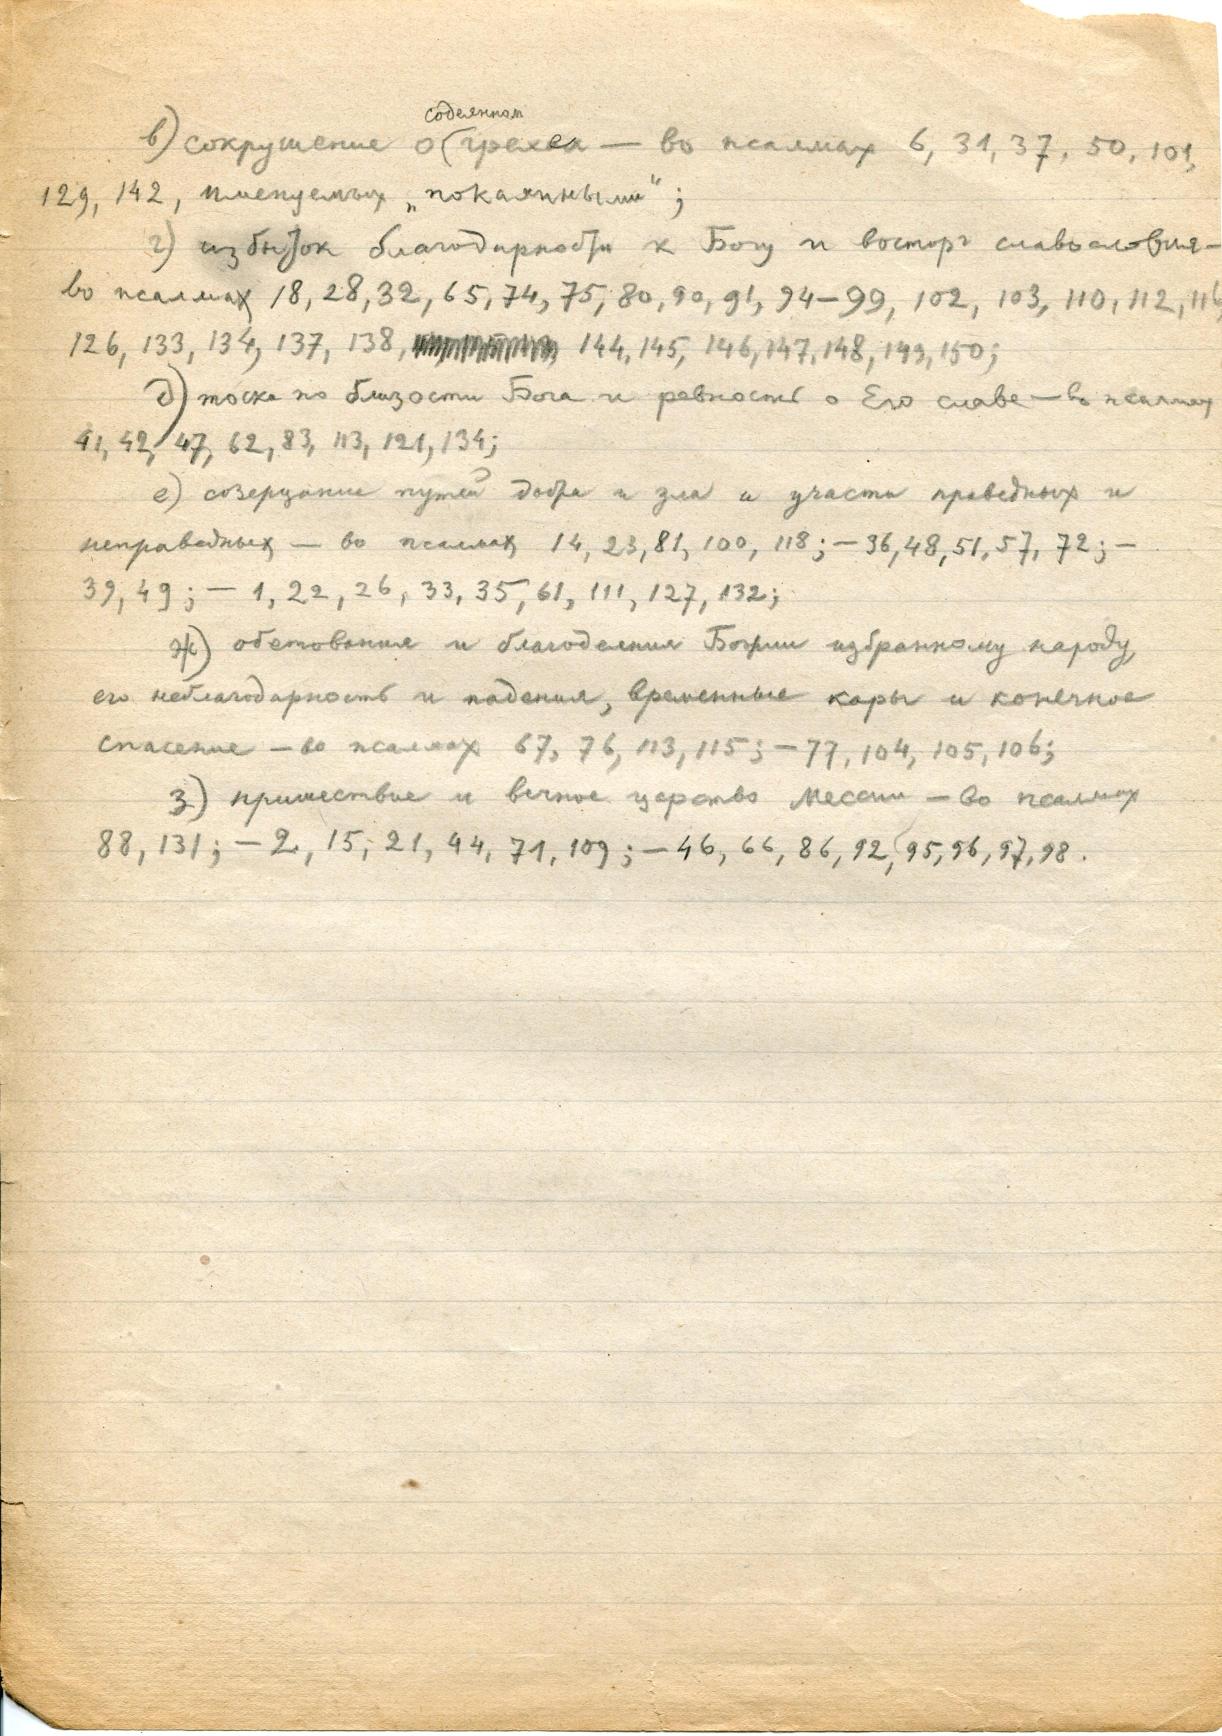 содеянном
в) сокрушение о грехе — во псалмах 6, 31, 37, 50, 101,
129, 142, именуемых „покаянными“;
г) избыток благодарности к Богу и восторг славословия —
во псалмах 18, 28, 32, 65, 74, 75, 80, 90, 91, 94–99, 102, 103, 110, 112, 116,
126, 133, 134, 137, 138, 144, 145, 146, 147, 148, 149, 150;
д) тоска по близости Бога и ревность о Его славе — во псалмах
41, 42, 47, 62, 83, 113, 121, 134;
е) созерцание путей добра и зла и участи праведных и
неправедных — во псалмах 14, 23, 81, 100, 118; — 36, 48, 51, 57, 72; —
39, 49; — 1, 22, 26, 33, 35, 61, 111, 127, 132;
ж) обетования и благодеяния Божии избранному народу,
его неблагодарность и падения, временные кары и конечное
спасение — во псалмах 67, 76, 113, 115; — 77, 104, 105, 106;
з) пришествие и вечное царство Мессии — во псалмах
88, 131; — 2, 15, 21, 44, 71, 109; — 46, 66, 86, 92, 95, 96, 97, 98.